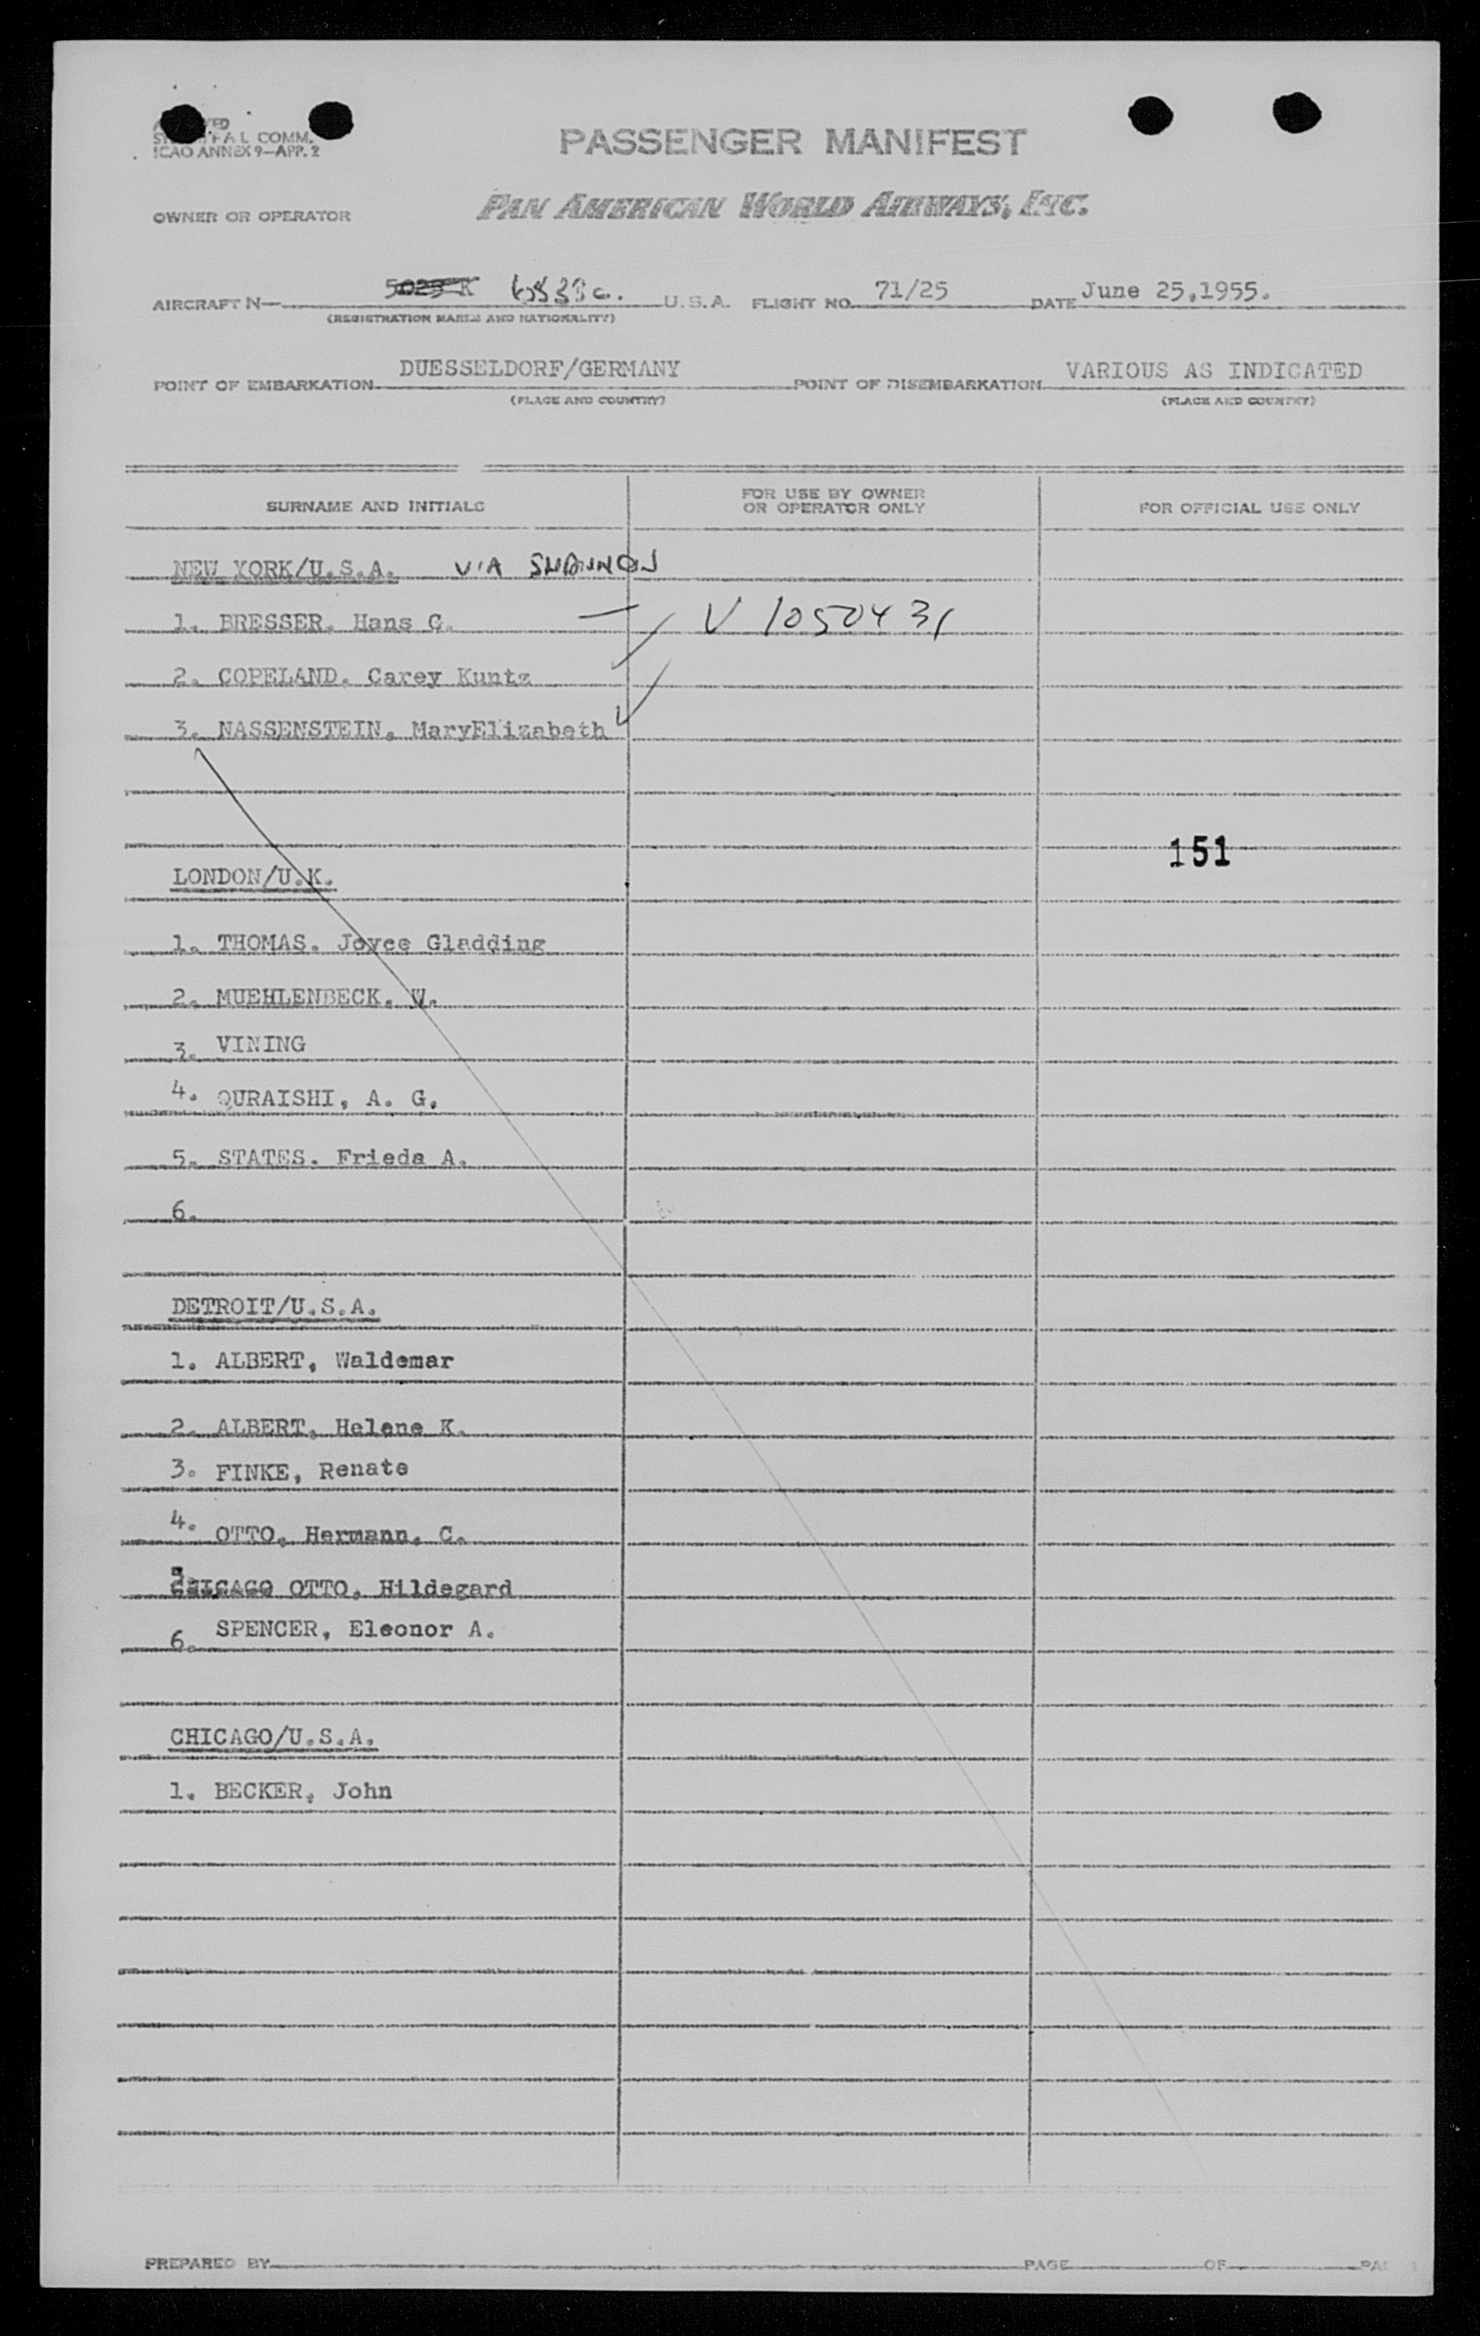 PASSENGER MANIFEST
COMM.
ICAO ANNEX 9—APP. 2
OWNER OR OPERATOR PAN AMERICAN WORLD AIRWAYS, INC.
AIRCRAFT N— U.S.A. FLIGHT NO. 71/25 DATE June 25,1955.
(REGISTRATION MARKS AND NATIONALITY)
POINT OF EMBARKATION DUESSELDORF/GERMANY POINT OF DISEMBARKATION VARIOUS AS INDICATED
(PLACE AND COUNTRY) (PLACE AND COUNTRY)
SURNAME AND INITIALS FOR USE BY OWNER OR OPERATOR ONLY FOR OFFICIAL USE ONLY
NEW YORK/U.S.A. VIA SHANNON
1. BRESSER, Hans G. V 1050431
2. COPELAND, Carey Kuntz
3. NASSENSTEIN, MaryElizabeth
151
LONDON/U.K.
1. THOMAS. Joyce Gladding
2. MUEHLENBECK, W.
3. VINING
4. QURAISHI, A. G.
5. STATES. Frieda A.
6.
DETROIT/U.S.A.
1. ALBERT, Waldemar
2. ALBERT, Helene K.
3. FINKE, Renate
4. OTTO, Hermann, C.
CHICAGO OTTO, Hildegard
6. SPENCER, Eleonor A.
CHICAGO/U.S.A.
1. BECKER, John
PREPARED BY PAGE OF